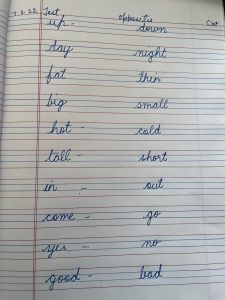 7.2.22 Test opposite's C.W
up - down
day night
fat thin
big small
hot - cold
tall - short
in - out
come - go
yes - no
good - bad